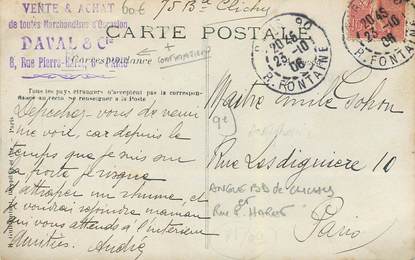 VENTE & ACHAT
de toutes Marchandises d'Occasion
DAVAL & Cie
8, Rue Pierre-Lescot, PARIS
60€
75 Bd Clichy
CARTE POSTALE
Correspondance
+
PARIS 90
20 45
23 . 10
06
R. FONTAINE
20 45
23 . 10
06
R. FONTAINE
Tous les pays étrangers n'acceptent pas la correspon-
dance au recto se renseigner à la Poste
Depechez-vous de venir
me voir, car depuis le
temps que je suis sur
la porte je risque
attraper un rhume, et
je voudrai rejoindre maman
qui vous attends à l'interieur
Amitiés. André
Maître Emile
9e
Rue Lesdiguière 10
ANGLE BD DE CLICHY
et
Rue P. HARET
Paris